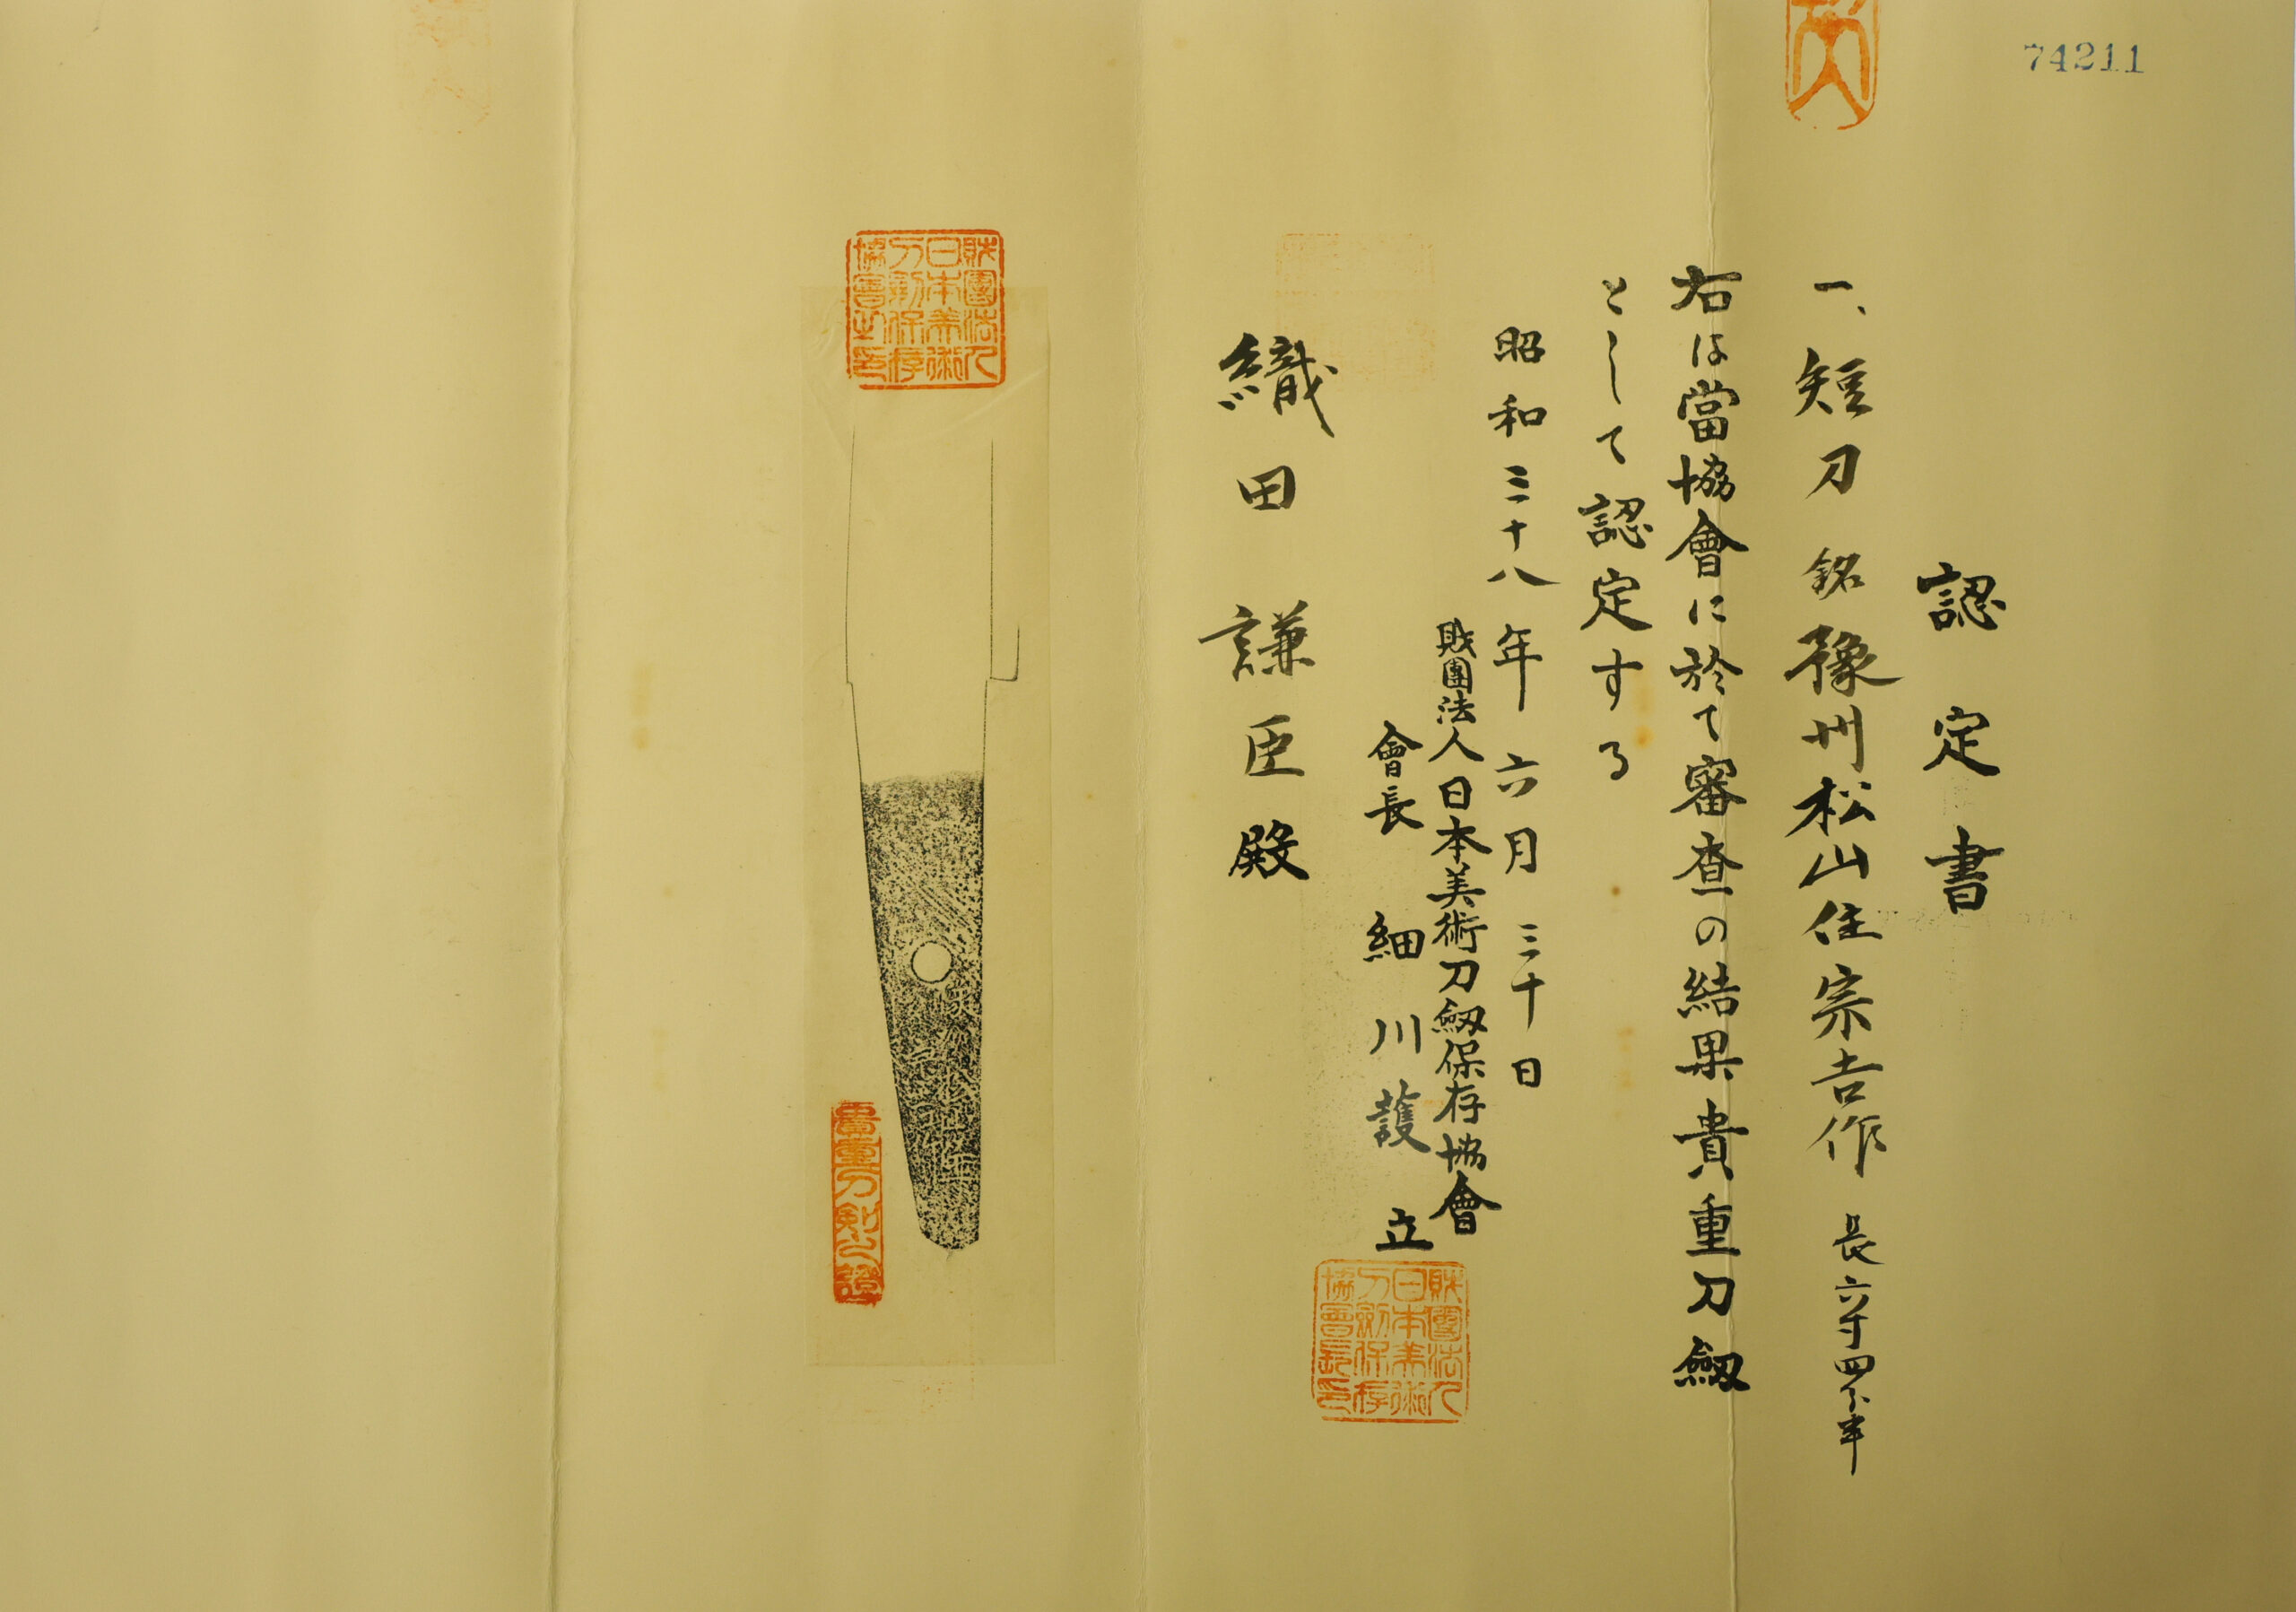 74211
認定書
一、短刀 銘 豫州松山住宗吉作 長六寸四分半
右は當協會に於て審査の結果貴重刀劔
として認定する
昭和三十八年六月三十日
財團法人日本美術刀劔保存協會
會長 細川護立
財團法人日本美術刀劍保存協會長印
織田謙臣殿
財團法人日本美術刀劍保存協會之印
貴重刀剣之證